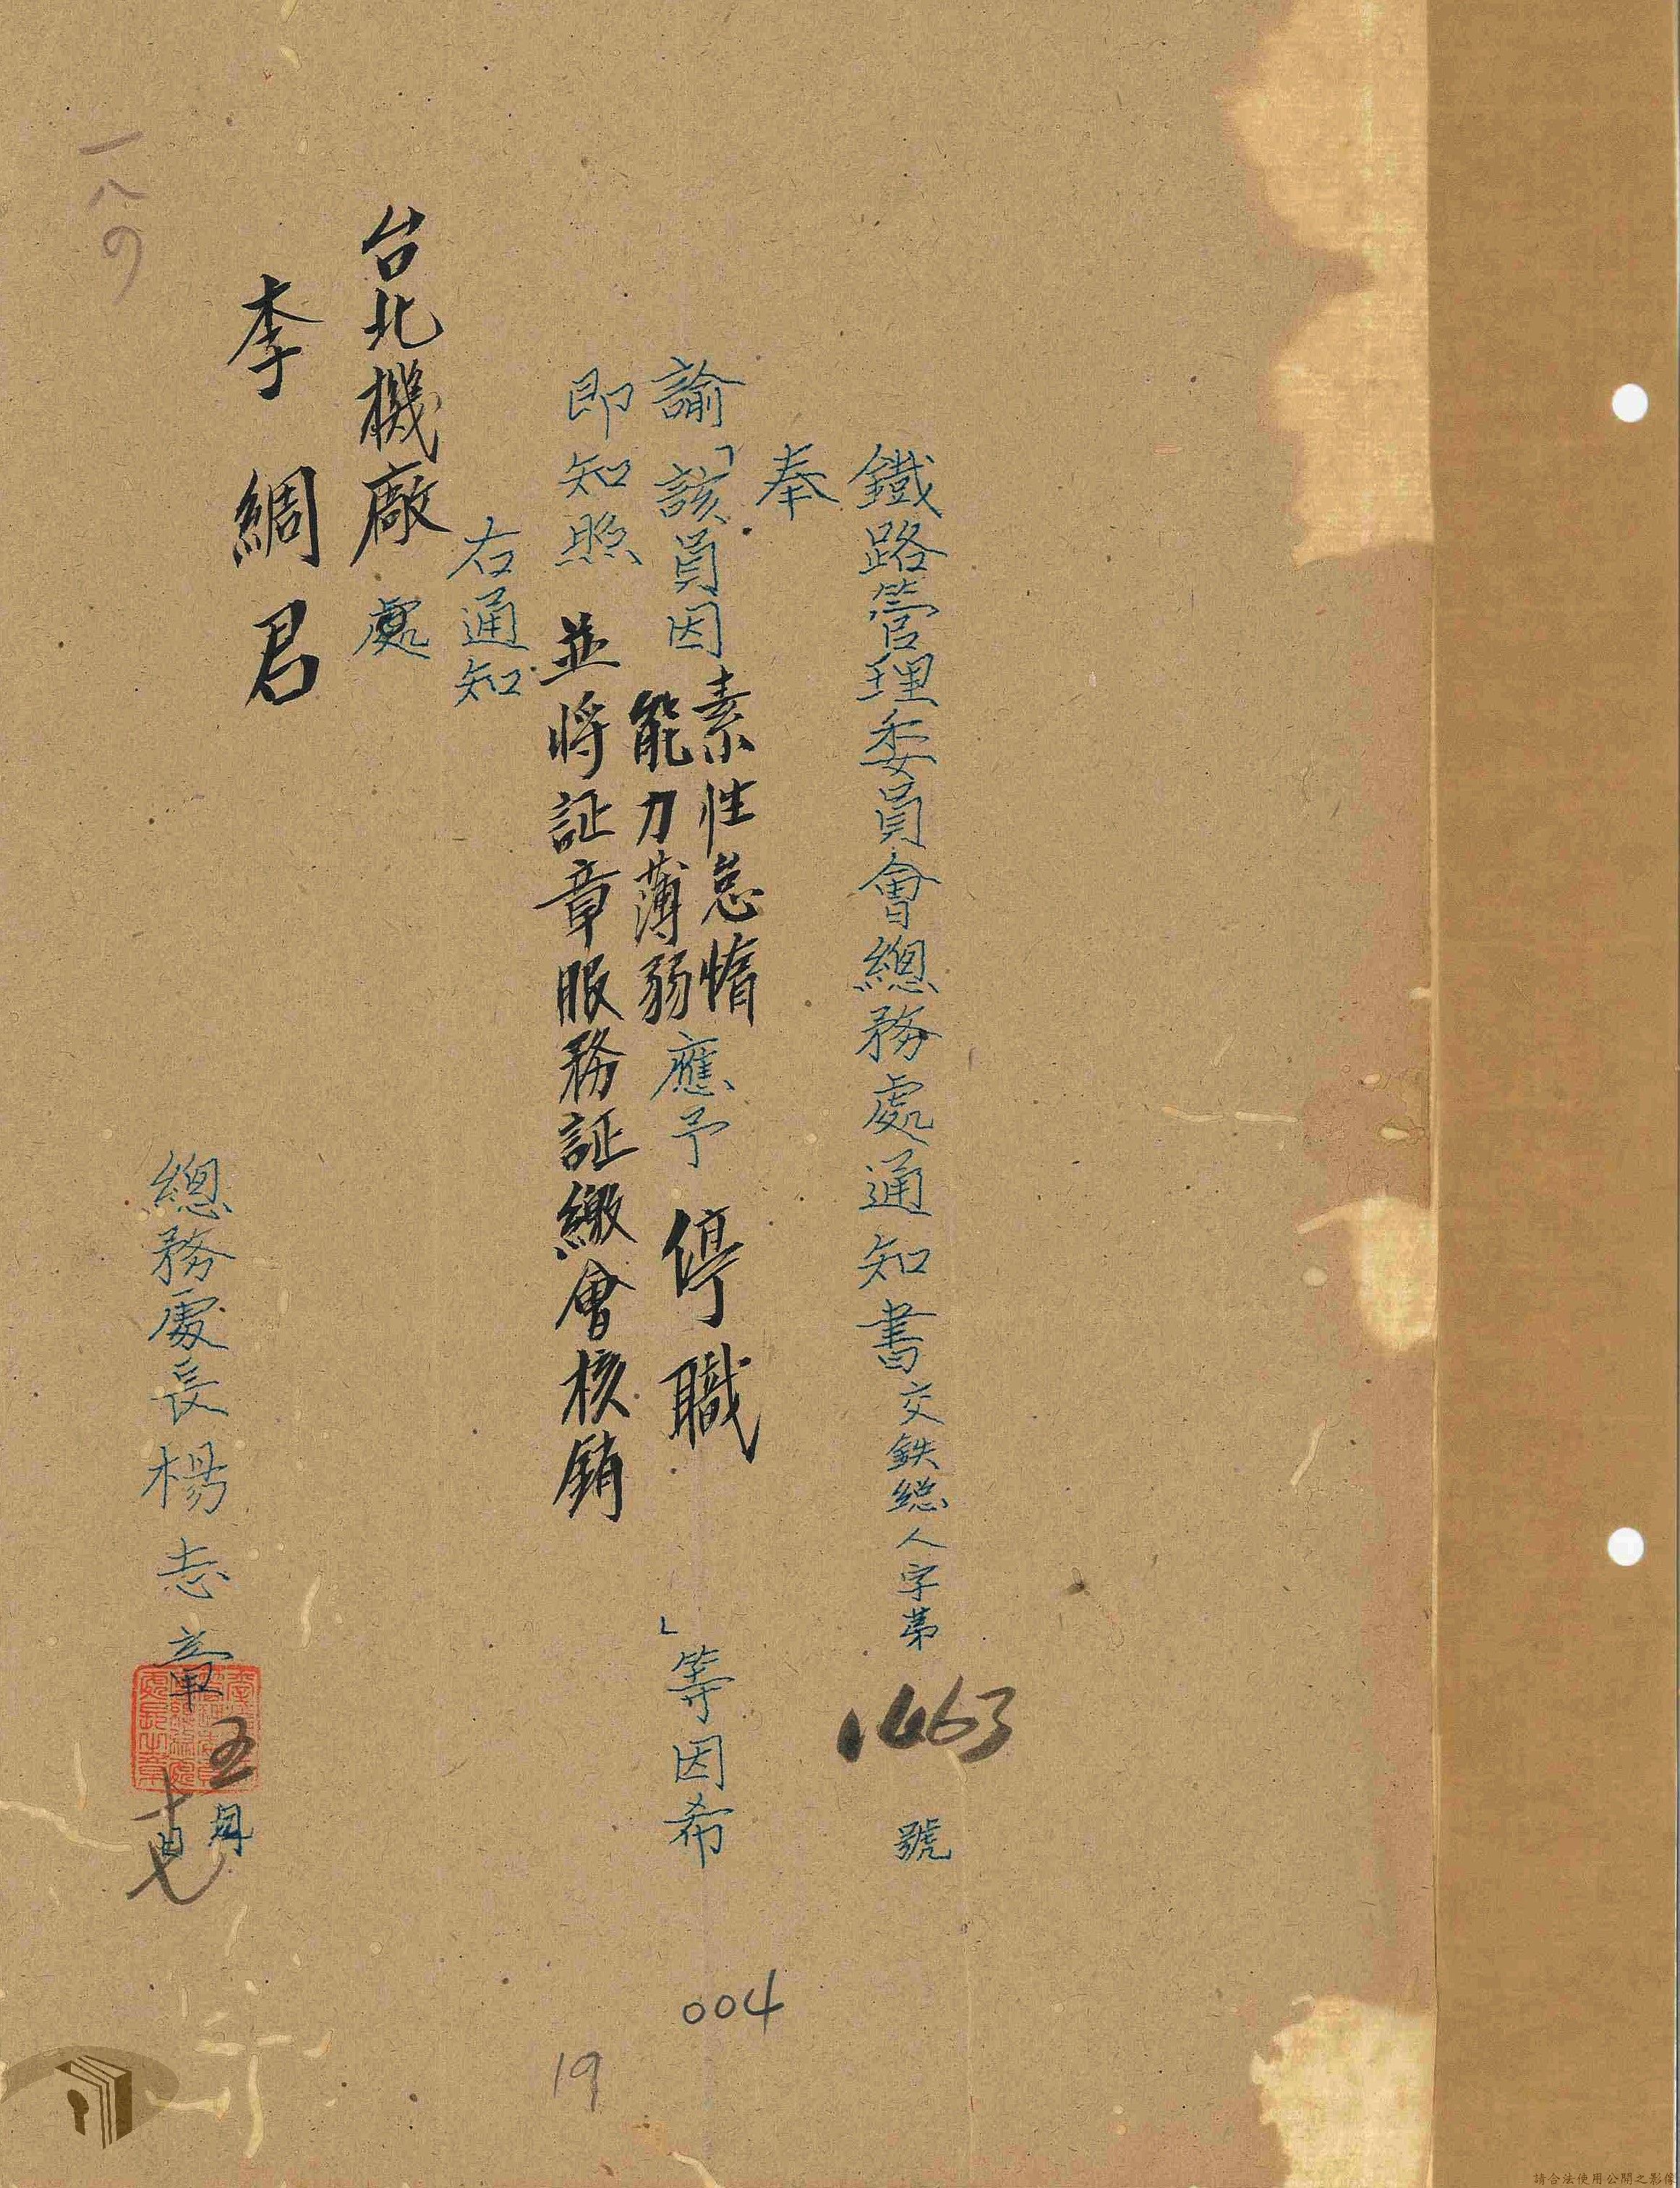 鐵路管理委員會總務處通知書交鉄総人字第1463號
奉
諭「該員因素性怠惰
能力薄弱應予停職」等因希
即知照並将証章服務証繳會核銷
右通知
台北機廠處
李綢君
總務處長楊志章
五月
十七日
一八九
004
19
請合法使用公開之影像